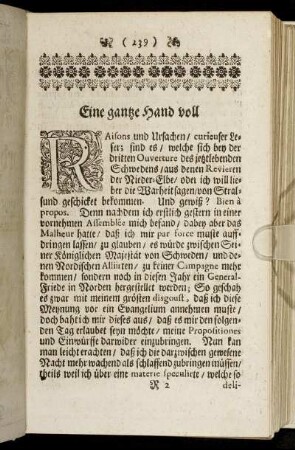 ( 239 )
Eine gantze Hand voll
RAisons und Ursachen / curieuser Le-
sers sind es / welche sich bey der
dritten Ouverture des jetztlebenden
Schwedens / aus denen Revieren
der Nieder-Elbe / oder ich will lie-
ber die Warheit sagen / von Stral-
sund geschicket bekommen. Und gewiß? Bien à
propos. Denn nachdem ich erstlich gestern in einer
vornehmen Assemblée mich befand / dabey aber das
Malheur hatte / daß ich mir par force muste auff-
dringen lassen / zu glauben / es würde zwischen Sei-
ner Königlichen Majestät von Schweden / und de-
nen Nordischen Alliirten / zu keiner Campagne mehr
kommen / sondern noch in diesen Jahr ein General-
Friede in Norden hergestellet werden; So geschah
es zwar mit meinem grösten disgoust, daß ich diese
Meynung vor ein Evangelium annehmen muste /
doch behielt mir dieses aus / daß es mir den folgen-
den Tag erlaubet seyn möchte / meine Propositiones
und Einwürffe darwider einzubringen. Nun kan
man leicht erachten / daß ich die darzwischen gewesene
Nacht mehr wachend als schlaffend zubringen müssen /
theils weil ich über eine materie speculirte, welche so
R 2 deli-